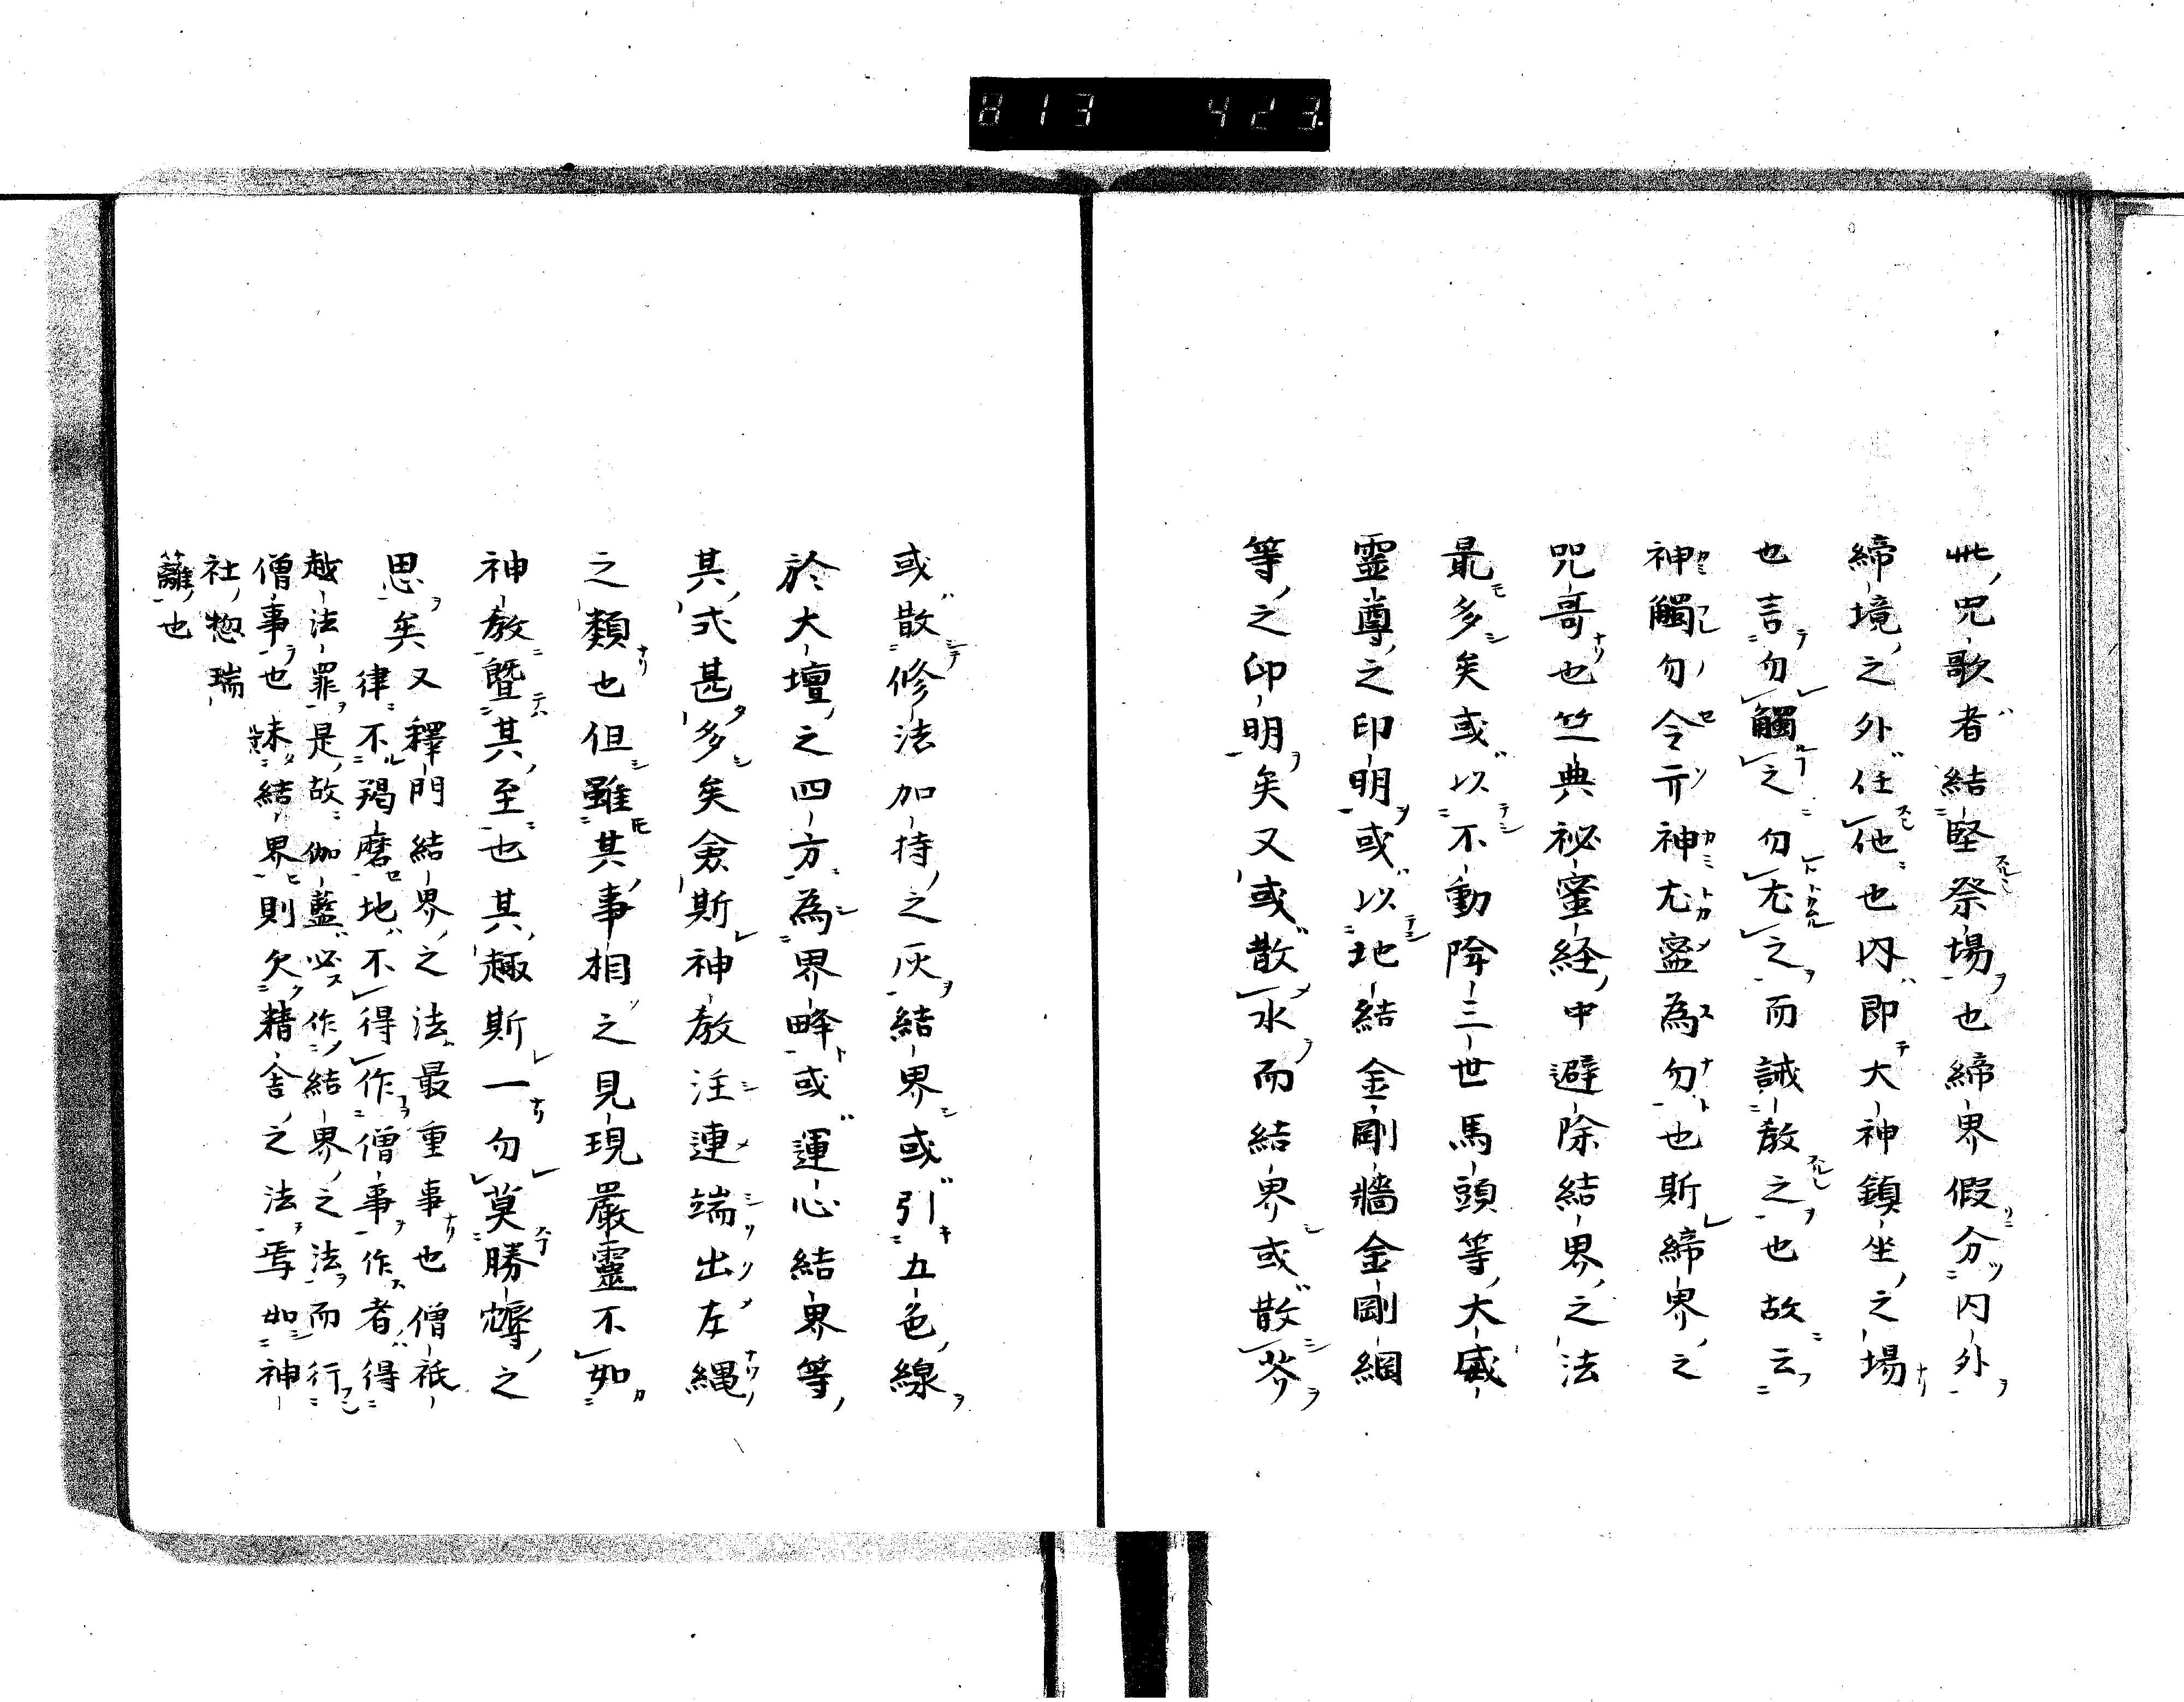 813 423.
此咒歌者結堅祭場也締界假分內外
締境之外任他也內即大神鎮坐之場
也言勿觸之勿尤之而誡教之也故云
神觸勿令尓神尤蜜為勿也斯締界之
咒哥也竺典祕蜜経中避除結界之法
最多矣或以不動降三世馬頭等大威
靈尊之印明或以地結金剛牆金剛網
等之印明矣又或散水而結界或散芥
或散修法加持之灰結界或引五色線
於大壇之四方為界畔或運心結界等
其式甚多矣僉斯神教注連端出左縄
之類也但雖其事相之見現嚴靈不如
神教曁其至也其趣斯一勿莫勝嫮之
思矣又釋門結界之法最重事也僧祇
律不羯磨地不得作僧事作者得
越法罪是故伽藍必作結界之法而行
僧事也未結界則欠精舎之法焉如神
社惣瑞
籬也